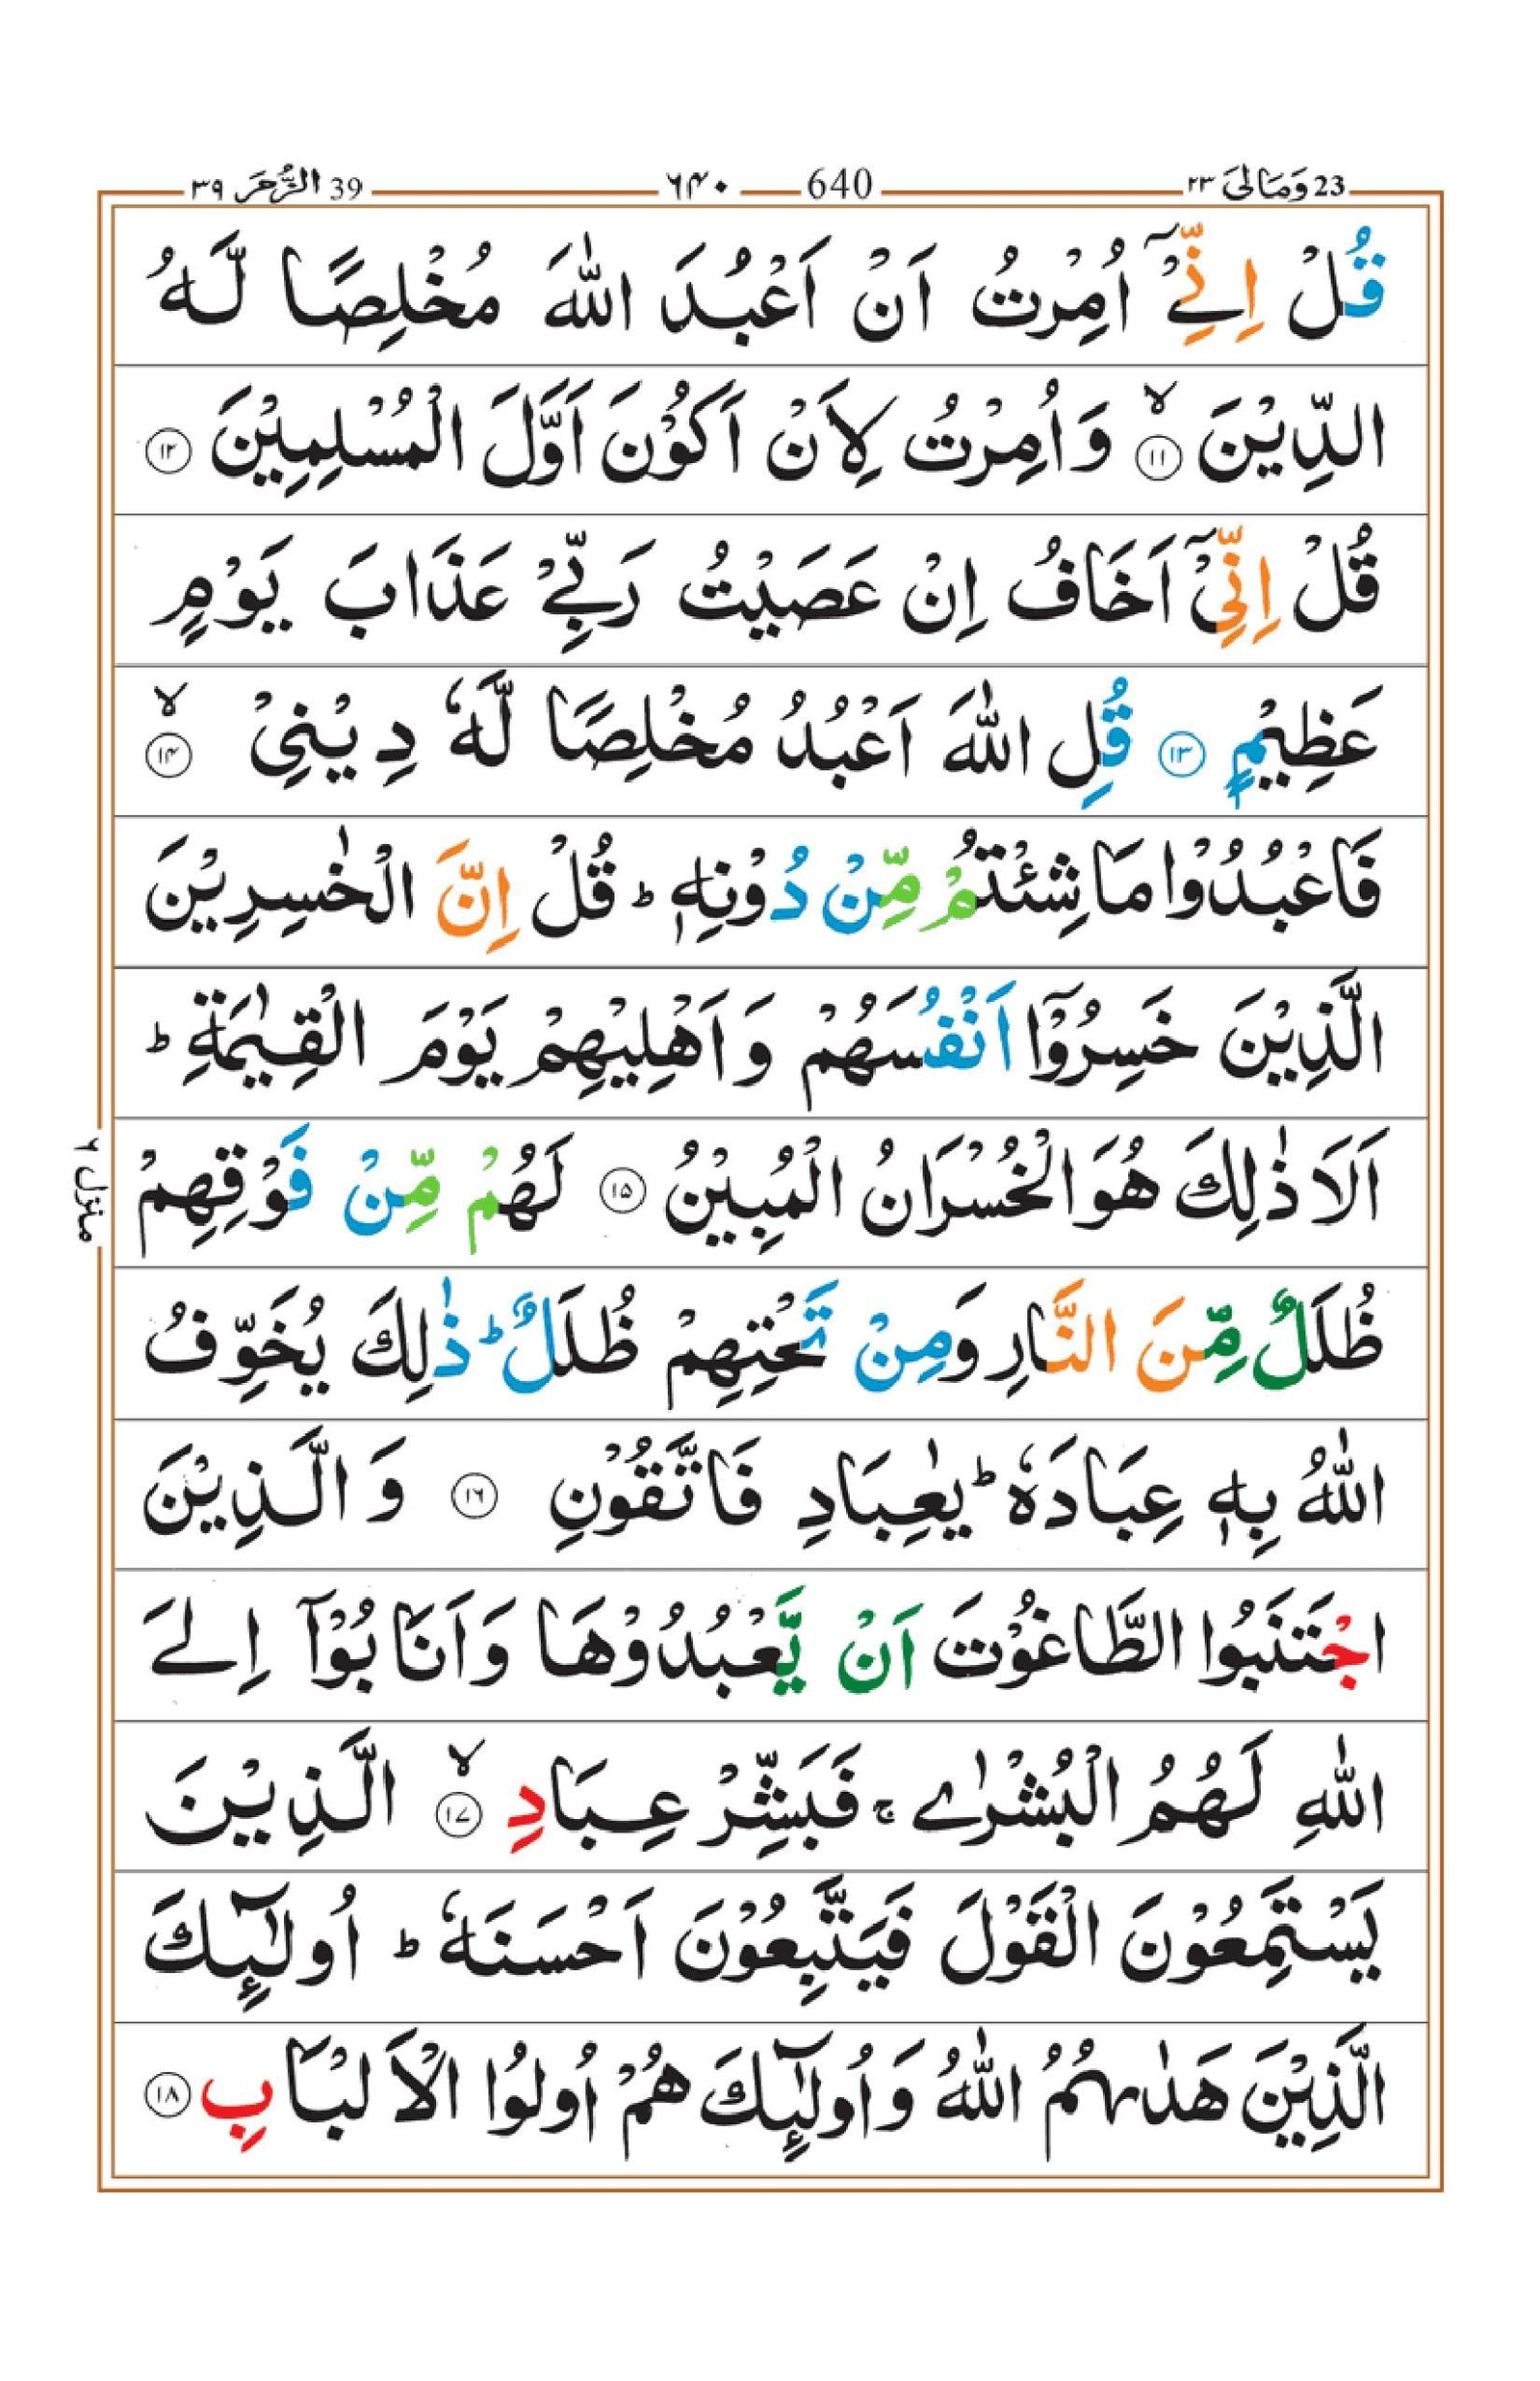 23 وَمَالِیَ ٢٣
640 ٦۴٠
39 الزُّمَر ٣٩
قُلْ اِنِّیْۤ اُمِرْتُ اَنْ اَعْبُدَ اللّٰهَ مُخْلِصًا لَّهُ
الدِّیْنَ ۙ﴿١١﴾ وَاُمِرْتُ لِاَنْ اَكُوْنَ اَوَّلَ الْمُسْلِمِیْنَ ﴿١٢﴾
قُلْ اِنِّیْۤ اَخَافُ اِنْ عَصَیْتُ رَبِّیْ عَذَابَ یَوْمٍ
عَظِیْمٍ ﴿١٣﴾ قُلِ اللّٰهَ اَعْبُدُ مُخْلِصًا لَّهٗ دِیْنِیْ ۙ﴿١۴﴾
فَاعْبُدُوْا مَا شِئْتُمْ مِّنْ دُوْنِهٖ ؕ قُلْ اِنَّ الْخٰسِرِیْنَ
الَّذِیْنَ خَسِرُوْۤا اَنْفُسَهُمْ وَاَهْلِیْهِمْ یَوْمَ الْقِیٰمَةِ ؕ
اَلَا ذٰلِكَ هُوَ الْخُسْرَانُ الْمُبِیْنُ ﴿١۵﴾ لَهُمْ مِّنْ فَوْقِهِمْ
ظُلَلٌ مِّنَ النَّارِ وَمِنْ تَحْتِهِمْ ظُلَلٌ ؕ ذٰلِكَ یُخَوِّفُ
اللّٰهُ بِهٖ عِبَادَهٗ ؕ یٰعِبَادِ فَاتَّقُوْنِ ﴿١٦﴾ وَالَّذِیْنَ
اجْتَنَبُوا الطَّاغُوْتَ اَنْ یَّعْبُدُوْهَا وَاَنَابُوْۤا اِلَی
اللّٰهِ لَهُمُ الْبُشْرٰی ۚ فَبَشِّرْ عِبَادِ ۙ﴿١٧﴾ الَّذِیْنَ
یَسْتَمِعُوْنَ الْقَوْلَ فَیَتَّبِعُوْنَ اَحْسَنَهٗ ؕ اُولٰٓىِٕكَ
الَّذِیْنَ هَدٰىهُمُ اللّٰهُ وَاُولٰٓىِٕكَ هُمْ اُولُوا الْاَلْبَابِ ﴿١٨﴾
منزل ٦